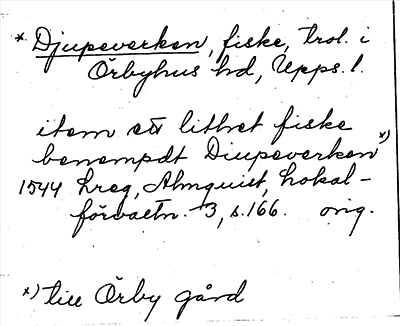 * Djupeverken, fiske, trol. i
Örbyhus hd, Upps. l.
item ett lithet fiske
benempdt Diupeverken x)
1544 hreg, Almquist, Lokal-
förvaltn. 3, s. 166. orig.
x) till Örby gård